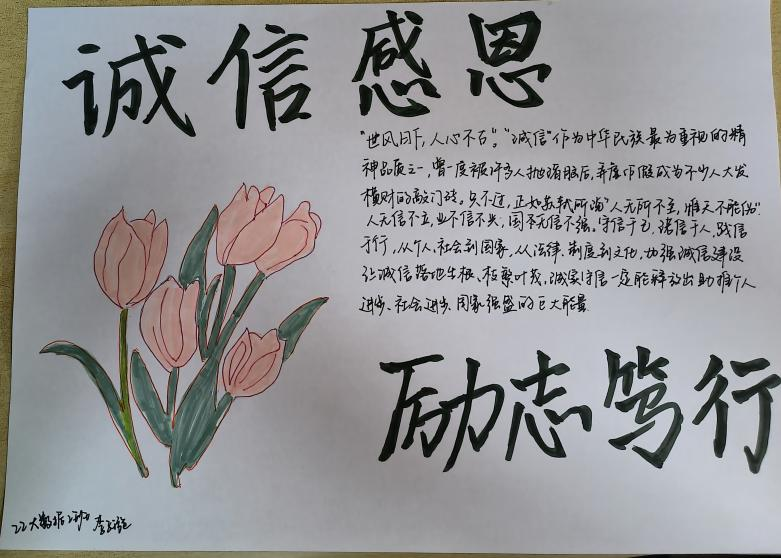 诚信感恩
"世风日下,人心不古"。"诚信"作为中华民族最为重视的精
神品质之一,曾一度被许多人抛诸脑后,弄虚作假成为不少人大发
横财的敲门砖。只不过,正如苏轼所谓"人无所不至,惟天不能伪"
人无信不立,业不信不兴,国不无信不强。守信于己,诸信于人,践信
于行,从个人、社会到国家,从法律、制度到文化,加强诚信建设
让诚信落地生根、枝繁叶茂,诚实守信一定能释放出助推个人
进步、社会进步、国家强盛的巨大能量
励志笃行
22大数据2班 李